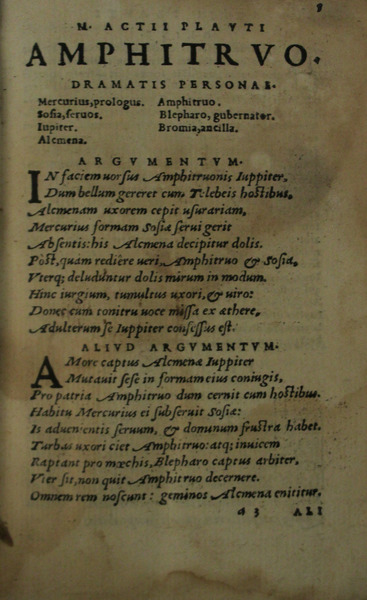 8
M. ACTII PLAVTI
AMPHITRVO.
DRAMATIS PERSONAE.
Mercurius, prologus. Amphitruo.
Sosia, seruos. Blepharo, gubernator.
Iupiter. Bromia, ancilla.
Alcmena.
ARGVMENTVM.
IN faciem uorsus Amphitruonis Iuppiter,
Dum bellum gereret cum Telebeis hostibus,
Alcmenam uxorem cepit usurariam,
Mercurius formam Sosiæ serui gerit
Absentis: his Alcmena decipitur dolis.
Post, quam rediere ueri Amphitruo & Sosia,
Vterq; deluduntur dolis mirum in modum.
Hinc iurgium, tumultus uxori, & uiro:
Donec cum tonitru uoce missa ex æthere,
Adulterum se Iuppiter confessus est.
ALIVD ARGVMENTVM.
AMore captus Alcmenæ Iuppiter
Mutauit sese in formam eius coniugis,
Pro patria Amphitruo dum cernit cum hostibus.
Habitu Mercurius ei subseruit Sosiæ:
Is aduenientis seruum, & dominum frustra habet.
Turbas uxori ciet Amphitruo: atq; inuicem
Raptant pro mœchis, Blepharo captus arbiter,
Vter sit, non quit Amphitruo decernere.
Omnem rem noscunt: geminos Alcmena enititur.
a 3 ALI